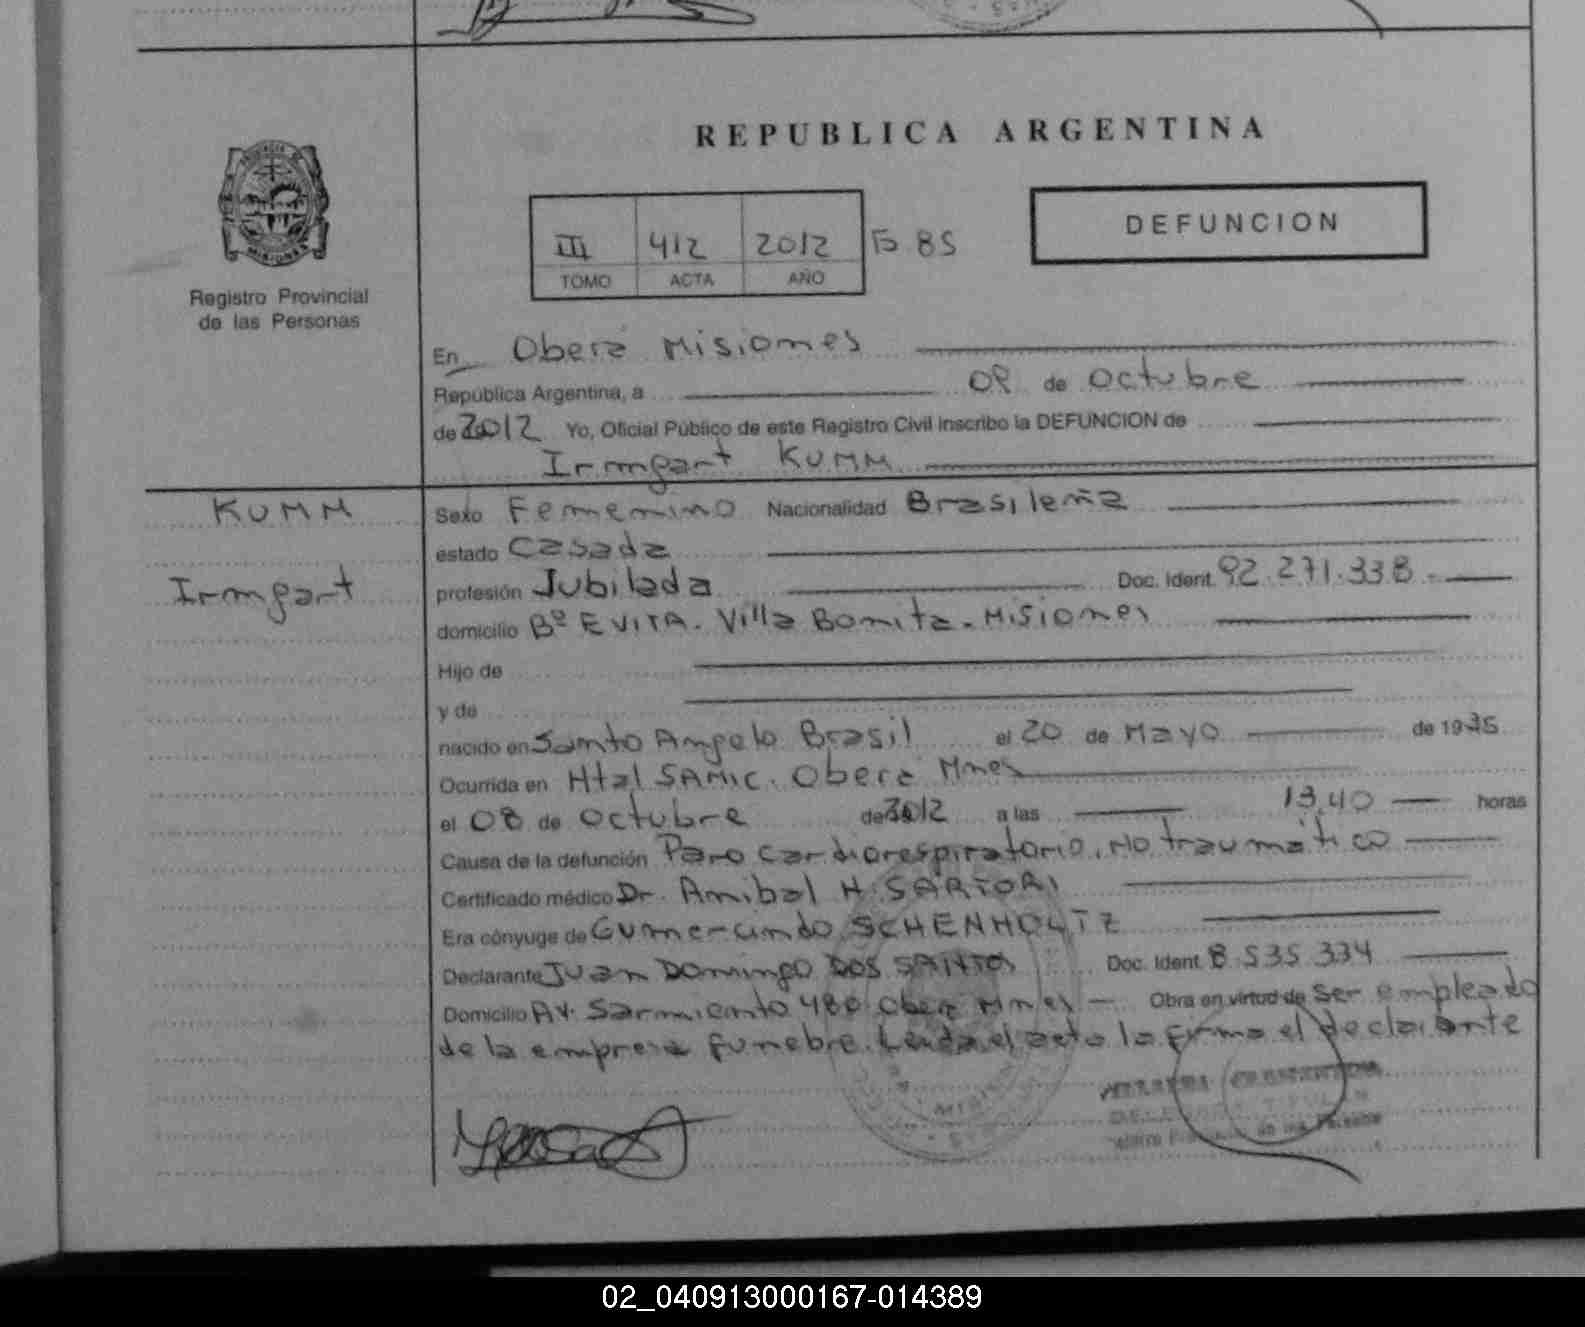 REPUBLICA ARGENTINA
DEFUNCION
III 412 2012 Fº 85
TOMO ACTA AÑO
PROVINCIA DE
MISIONES
Registro Provincial
de las Personas
En Oberá Misiones
República Argentina, a 09 de Octubre
de 2012 Yo, Oficial Público de este Registro Civil inscribo la DEFUNCION de
Irmgart KUMM
KUMM
Irmgart
Sexo Femenino Nacionalidad Brasileña
estado Casada
profesión Jubilada Doc. Ident. 92.271.338.-
domicilio Bº EVITA. Villa Bonita. Misiones
Hijo de
y de
nacido en Santo Angelo Brasil el 20 de Mayo de 19
Ocurrida en Htal SAMIC. Oberá Mnes
el 08 de Octubre de 2012 a las 13,40 horas
Causa de la defunción Paro cardiorespiratorio, No traumático
Certificado médico Dr. Anibal H. SARTORI
Era cónyuge de Gumercindo SCHENHOLTZ
Declarante Juan Domingo DOS SANTOS Doc. Ident 8.535.334
Domicilio Av. Sarmiento 480 Oberá Mnes - Obra en virtud de Ser empleado
de la empresa funebre. Leida el acta la firma el declarante
02_040913000167-014389